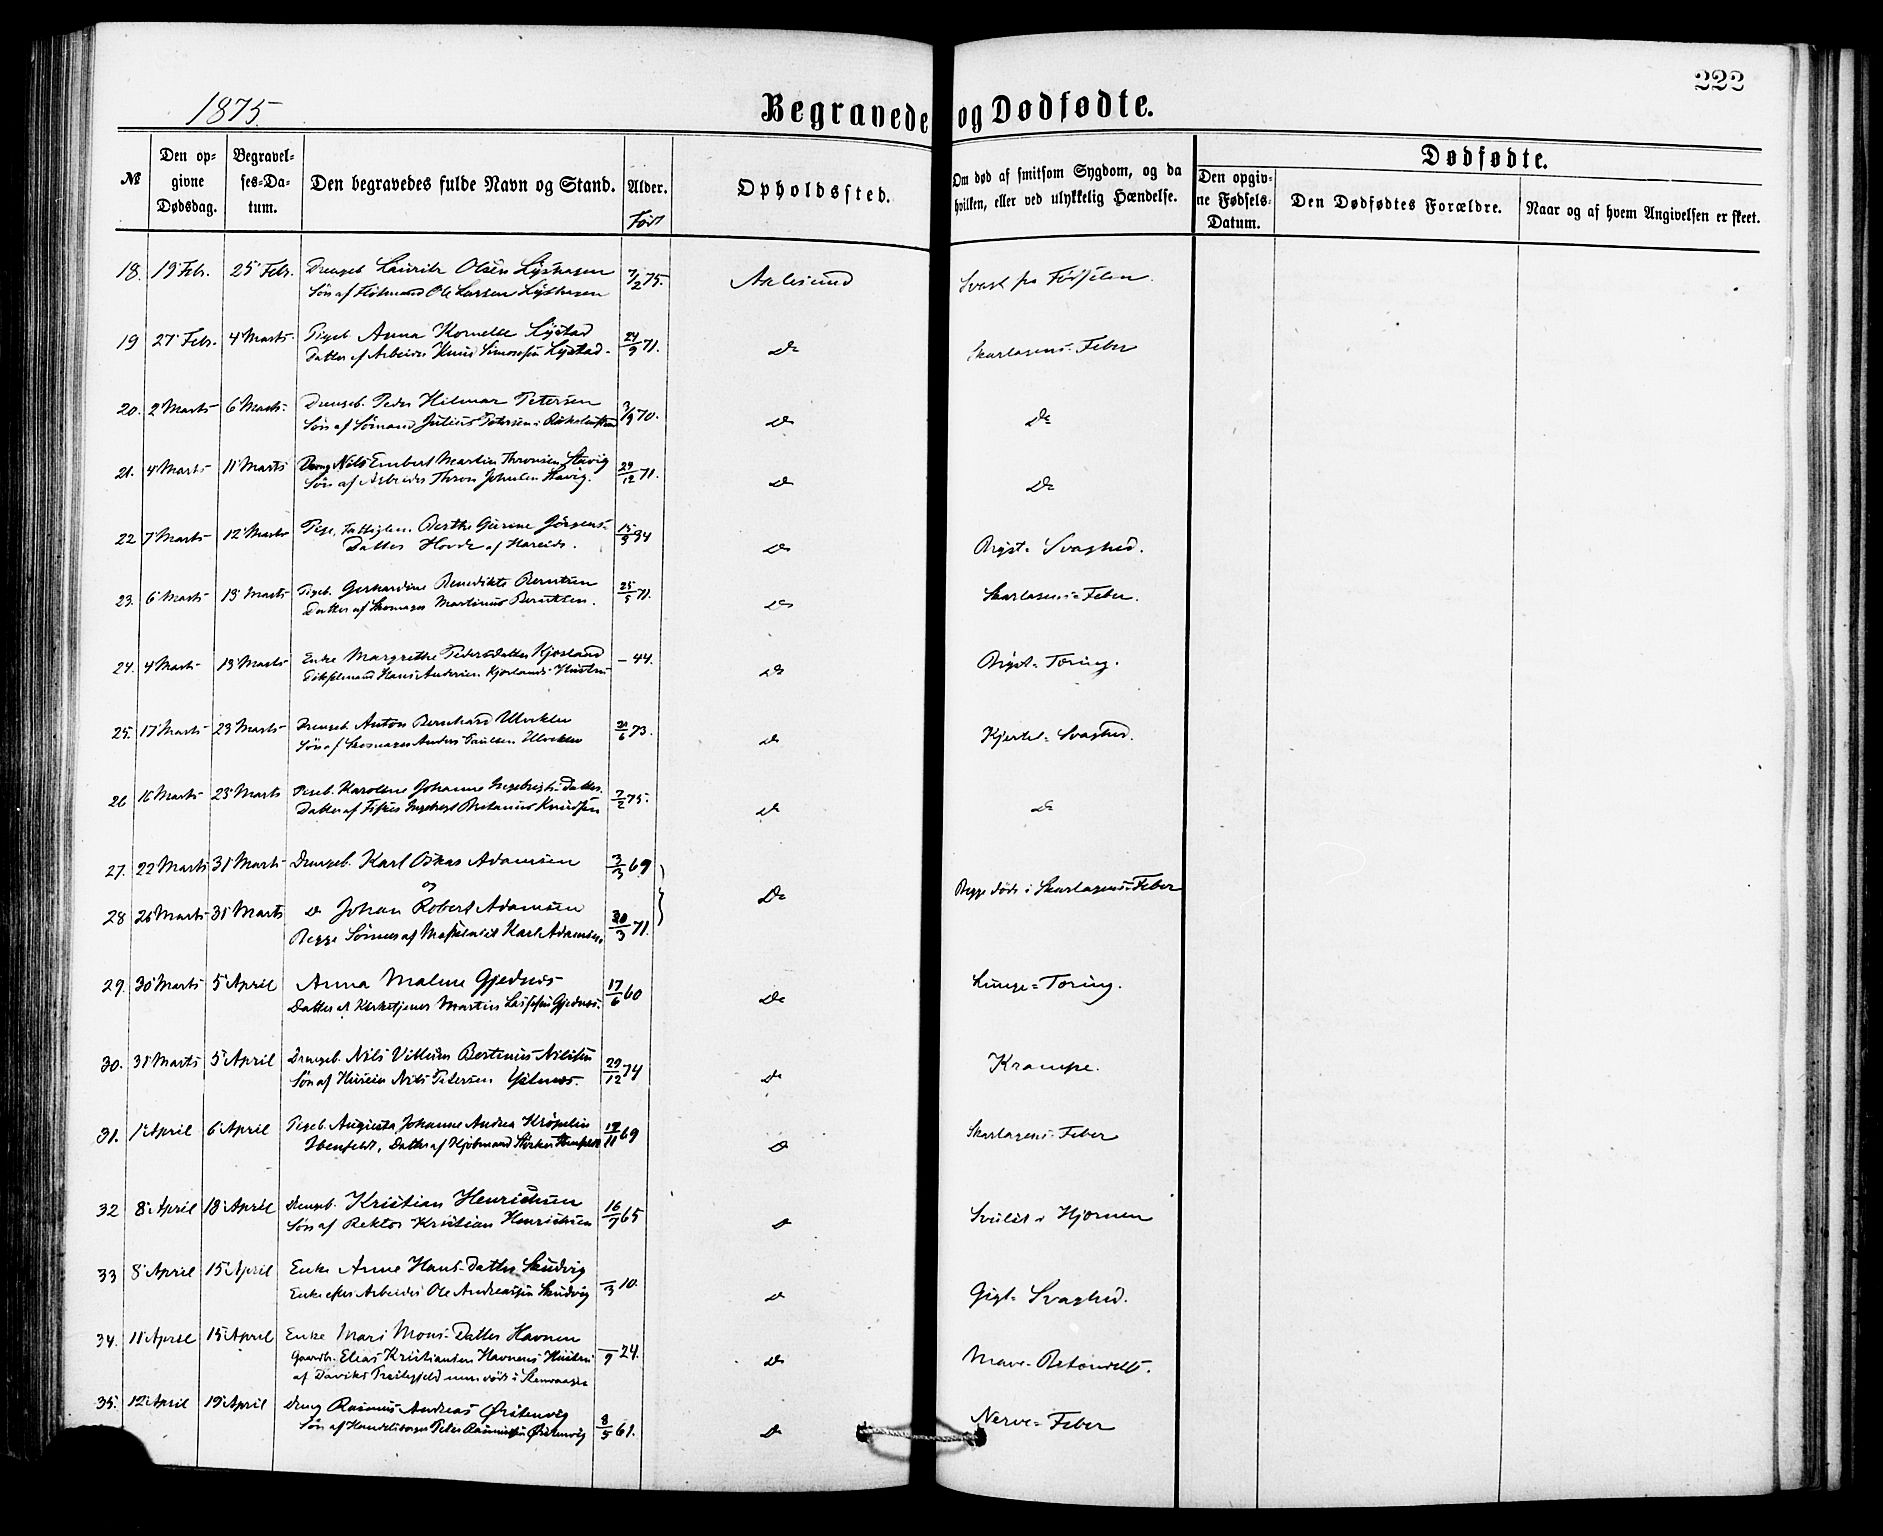 222
1875.
Begravede og Dødfødte.
№
Den opgivne Dødsdag.
Begravelses-Datum.
Den begravedes fulde Navn og Stand.
Alder.
Født
Opholdssted.
Om død af smitsom Sygdom, og da hvilken, eller ved ulykkelig Hændelse.
Dødfødte.
Den opgivne Fødsels-Datum.
Den Dødfødtes Forældre.
Naar og af hvem Angivelsen er skeet.
18. 19 Febr. 25 Febr. Drengeb. Laurits Olsen Lyshagen 7/2 75. Aalesund Svag fra Fødselen.
Søn af Ole Larsen Lyshagen
19 27 Febr. 4 Marts Pigeb. Anna Kornelie Lystad 24/9 71. Do Skarlagens-Feber
Datter af Arbeider Knud Simonsen Lystad.
20. 2 Marts 6 Marts Drengeb. Peder Hilmar Petersen 3/9 70. Do Do
Søn af Sømand Julius Petersen
21. 4 Marts 11 Marts Dreng Nils Embert Martin Thronsen Havig 29/12 71. Do Do
Søn af Arbeider Thron Johnsen Havig.
22 7 Marts 12 Marts Pige, Fattiglem. Berthe Gurine Jørgens- 15/3 94 Do Bryst-Svaghed.
Datter Hovde af Hareide.
23. 6 Marts 13 Marts Pigeb. Gerhardine Benedikte Berntsen 25/5 71. Do Skarlagens-Feber.
Datter af Skomager Martinus Berntsen.
24. 4 Marts 13 Marts Enke Margrethe Pedersdatter Kjosland - 44. Do Bryst-Tæring.
Hans Andersen Kjoslands Hustru
25. 17 Marts 23 Marts Drengeb. Anton Bernhard Ulveklev 21/6 73. Do Kjertel-Svaghed.
Søn af Skomager Anders Paulsen Ulveklev
26 16 Marts 23 Marts Pigeb. Karoline Johanne Ingebrigts-Datter. 7/2 75. Do Do
Datter af Fisker Ingebrigt Knudsen
27. 22 Marts 31 Marts Drengeb. Karl Oskar Adamsen 3/3 69
og Do Begge døde i Skarlagens-Feber
28 26 Marts 31 Marts Do Johan Robert Adamsen 30/3 71.
Begge Sønner af Karl Adamsen.
29. 30 Marts 5 April Anna Maline Gjednæs 17/6 60 Do Lunge-Tæring.
Datter af Kirketjener Martin Gjednæs.
30. 31 Marts 5 April Drengeb. Nils Vilhelm Bertinus Nilsen 29/12 74 Do Krampe.
Søn af Nils Petersen
31. 1 April 6 April Pigeb. Augusta Johanne Andrea Krøpelin 19/11 69 Do Skarlagens-Feber
Ibenfeldt, Datter af Kjøbmand
32 8 April 18 April Drengeb. Kristian Henrichsen 16/7 65 Do Svulst i Hjernen
Søn af Rektor Kristian Henrichsen
33 8 April 15 April Enke Anne Hans-Datter Skudvig /3 10. Do Gigt-Svaghed.
Enke efter Arbeider Ole Andreassen Skudvig
34. 11 April 15 April Enke Mari Mons-Datter Havnen /9 24. Do Mave-Betændelse.
Gaardbr. Elias Kristiansen Havnens Hustru
af Davikens Præstegjeld
35. 12 April 19 April Dreng Rasmus Andreas Ørstenvig 8/5 61. Do Nerve-Feber
Søn af Handelsborger Peter Rasmussen Ørstenvig